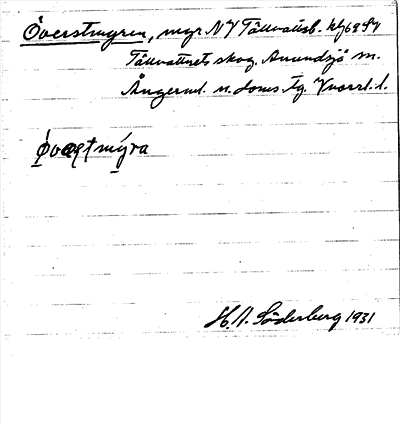 Överstmyren, mgr. NV Tällvattsb. kbl 69 Sv
Tällvattnets skog. Anundsjö sn.
Ångerml. n. doms. tg. Vnorrl. l.
øveʂtmýra
H. N. Söderberg 1931